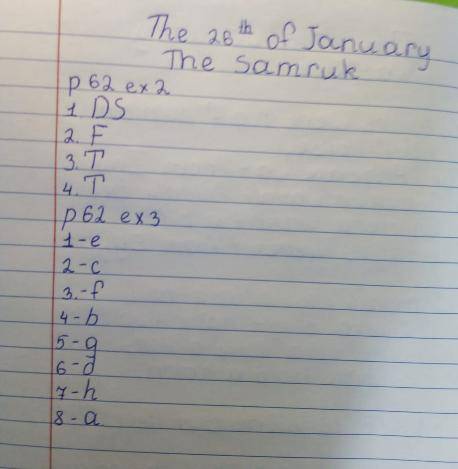 The 28th of January
The Samruk
p 62 ex 2
1. DS
2. F
3. T
4. T
p 62 ex 3
1-e
2-c
3.-f
4-b
5-g
6-d
7-h
8-a